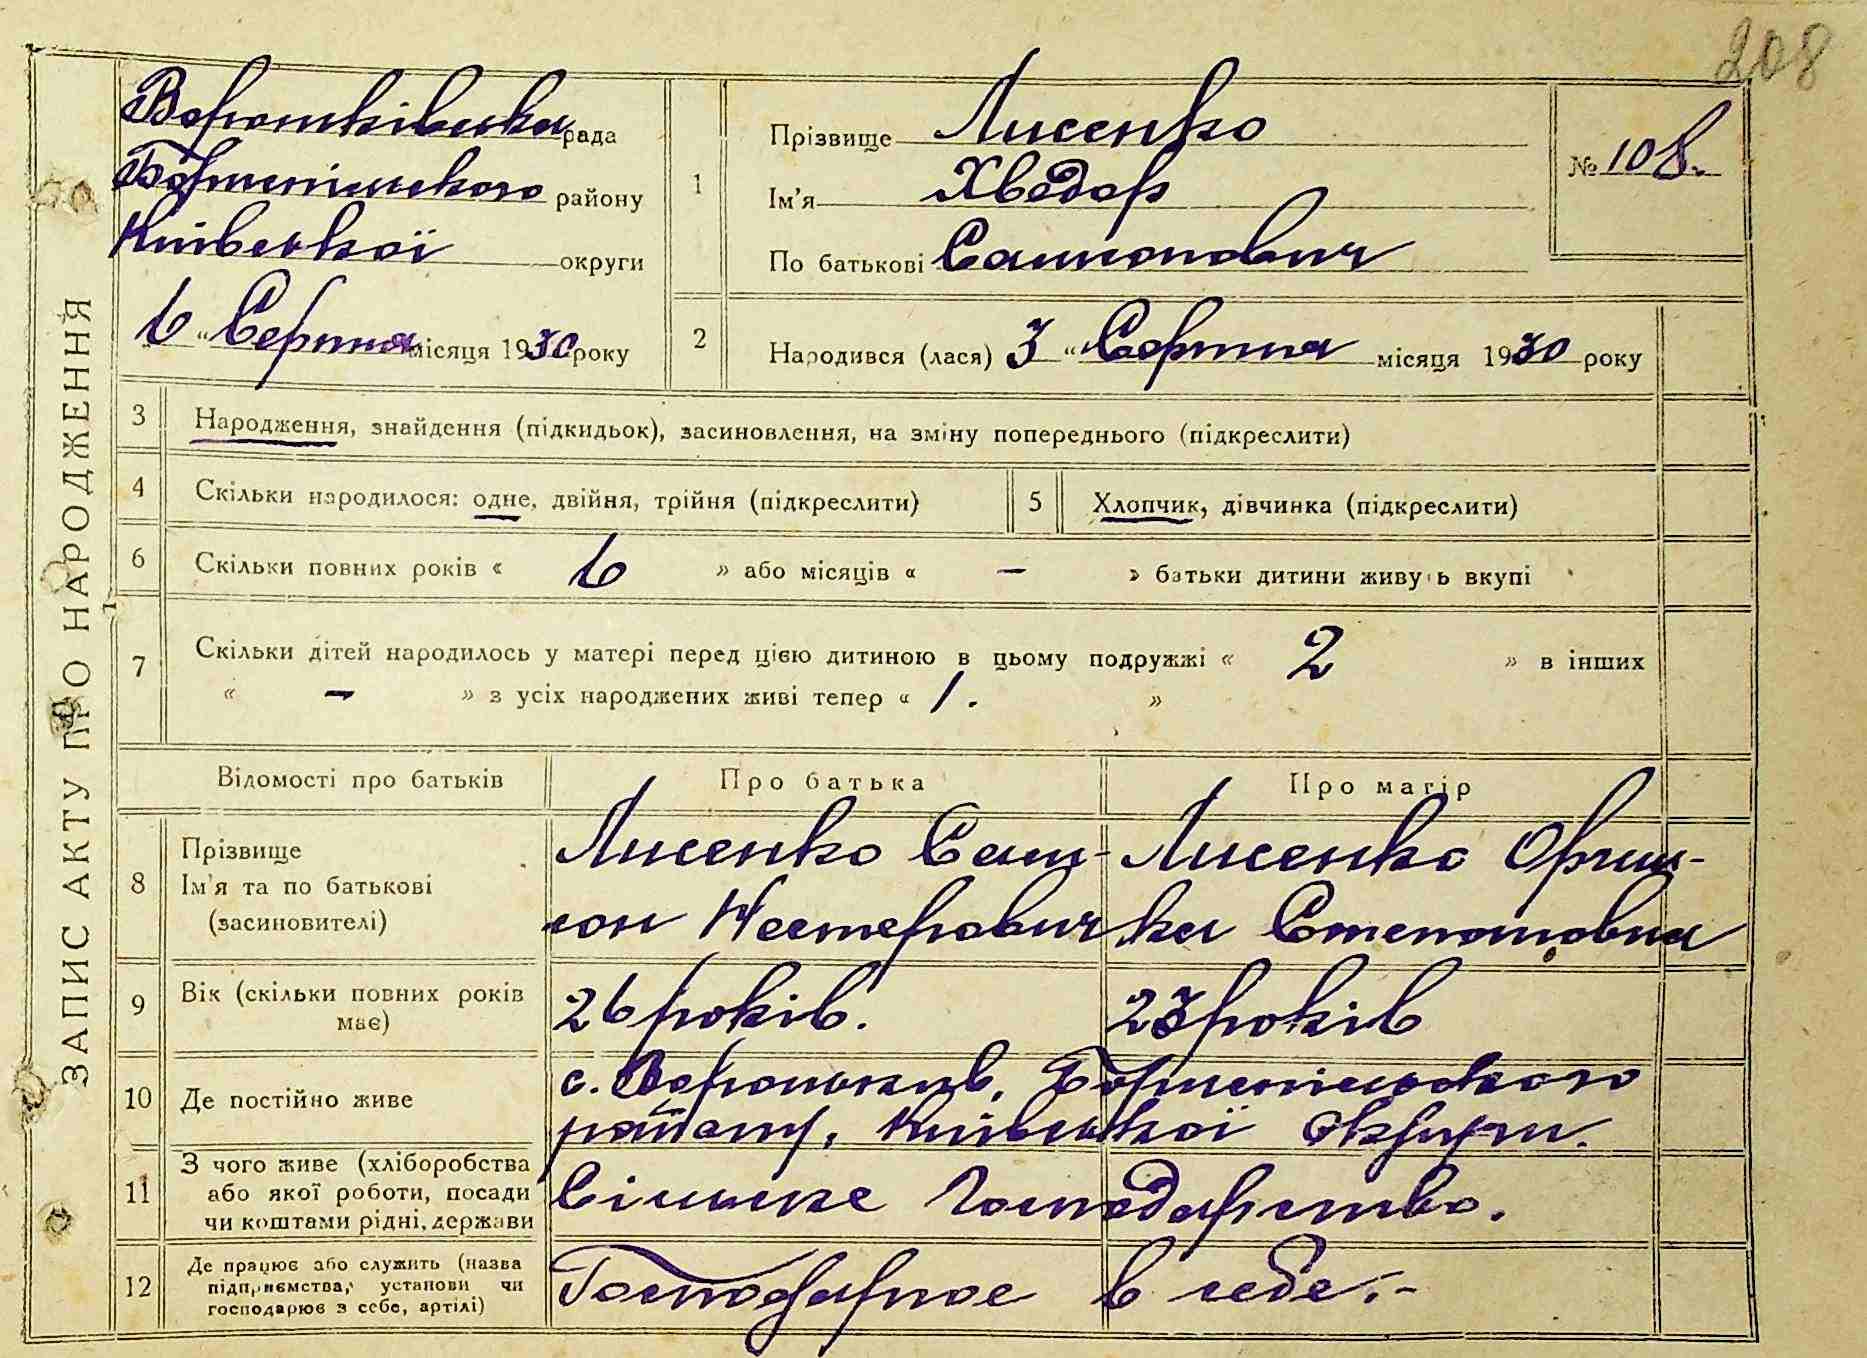 208
ЗАПИС АКТУ ПРО НАРОДЖЕННЯ
Вороньківська рада
Бориспільського району
Київської округи
„6“ Серпня місяця 1930 року
1
Прізвище Лисенко
Ім'я Хведор
По батькові Самсонович
№ 108.
2
Народився (лася) 3 “ Серпня місяця 1930 року
3 Народження, знайдення (підкидьок), засиновлення, на зміну попереднього (підкреслити)
4 Скільки народилося: одне, двійня, трійня (підкреслити) 5 Хлопчик, дівчинка (підкреслити)
6 Скільки повних років « 6 » або місяців « – » батьки дитини живуть вкупі
7 Скільки дітей народилось у матері перед цією дитиною в цьому подружжі « 2 » в інших
« – » з усіх народжених живі тепер « 1. »
Відомості про батьків Про батька Про матір
8 Прізвище
Ім'я та по батькові
(засиновителі)
Лисенко Сам-
сон Нестерович
Лисенко Ориш-
ка Степановна
9 Вік (скільки повних років
має)
26 років. 23 років
10 Де постійно живе
с. Вороньків, Бориспільського
району, Київської округи.
11 З чого живе (хліборобства
або якої роботи, посади
чи коштами рідні, держави
Сільське господарство.
12 Де працює або служить (назва
підприємства, установи чи
господарює з себе, артілі)
Господарює в себе.-